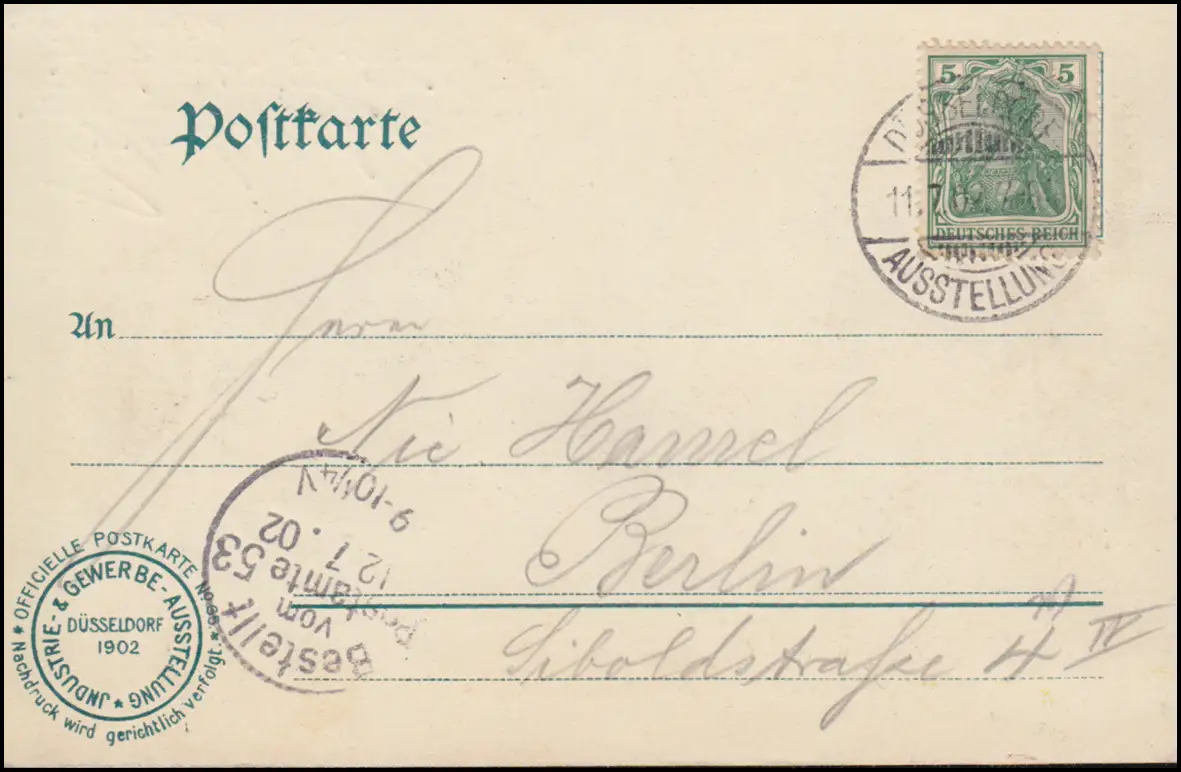 Postkarte
5 5
DEUTSCHES REICH
DÜSSELDORF
11.7.02.
AUSSTELLUNG
An Herrn
Nic Hamel
Berlin
Siboldstraße 4 IV
Bestellt
vom
Postamte 53
12 7.02
9-10¼V
* OFFICIELLE POSTKARTE No
* Nachdruck wird gerichtlich verfolgt.
JNDUSTRIE- & GEWERBE-AUSSTELLUNG *
DÜSSELDORF
1902